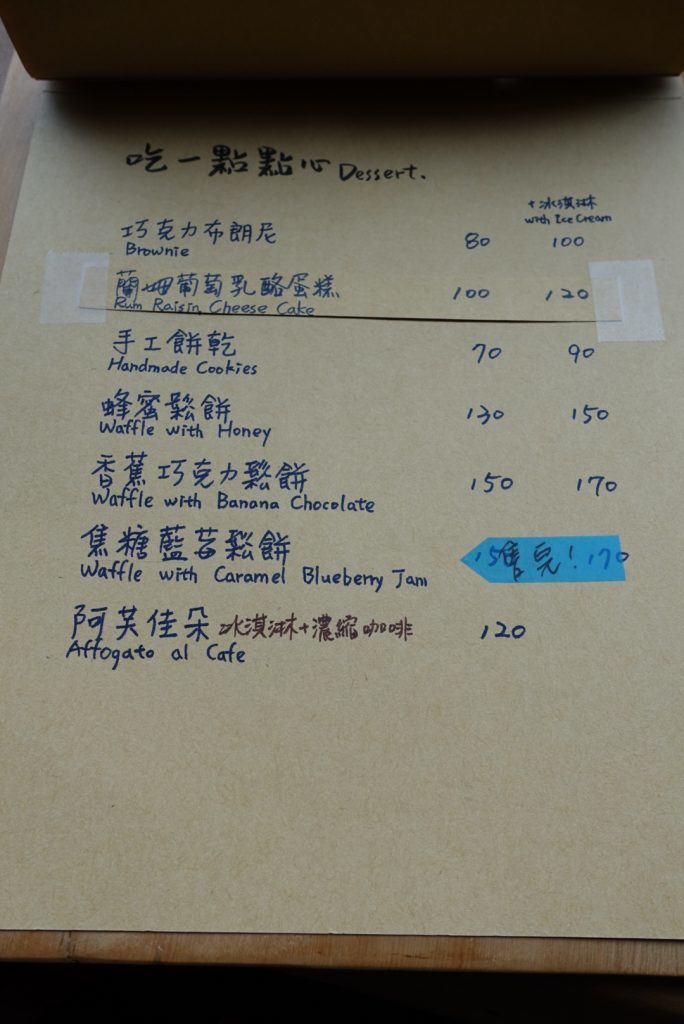 吃一點點心 Dessert.
+冰淇淋
with Ice Cream
巧克力布朗尼 80 100
Brownie
蘭姆葡萄乳酪蛋糕 100 120
Rum Raisin Cheese Cake
手工餅乾 70 90
Handmade Cookies
蜂蜜鬆餅 130 150
Waffle with Honey
香蕉巧克力鬆餅 150 170
Waffle with Banana Chocolate
焦糖藍莓鬆餅 售完! 170
Waffle with Caramel Blueberry Jam
阿芙佳朵 冰淇淋+濃縮咖啡 120
Affogato al Cafe